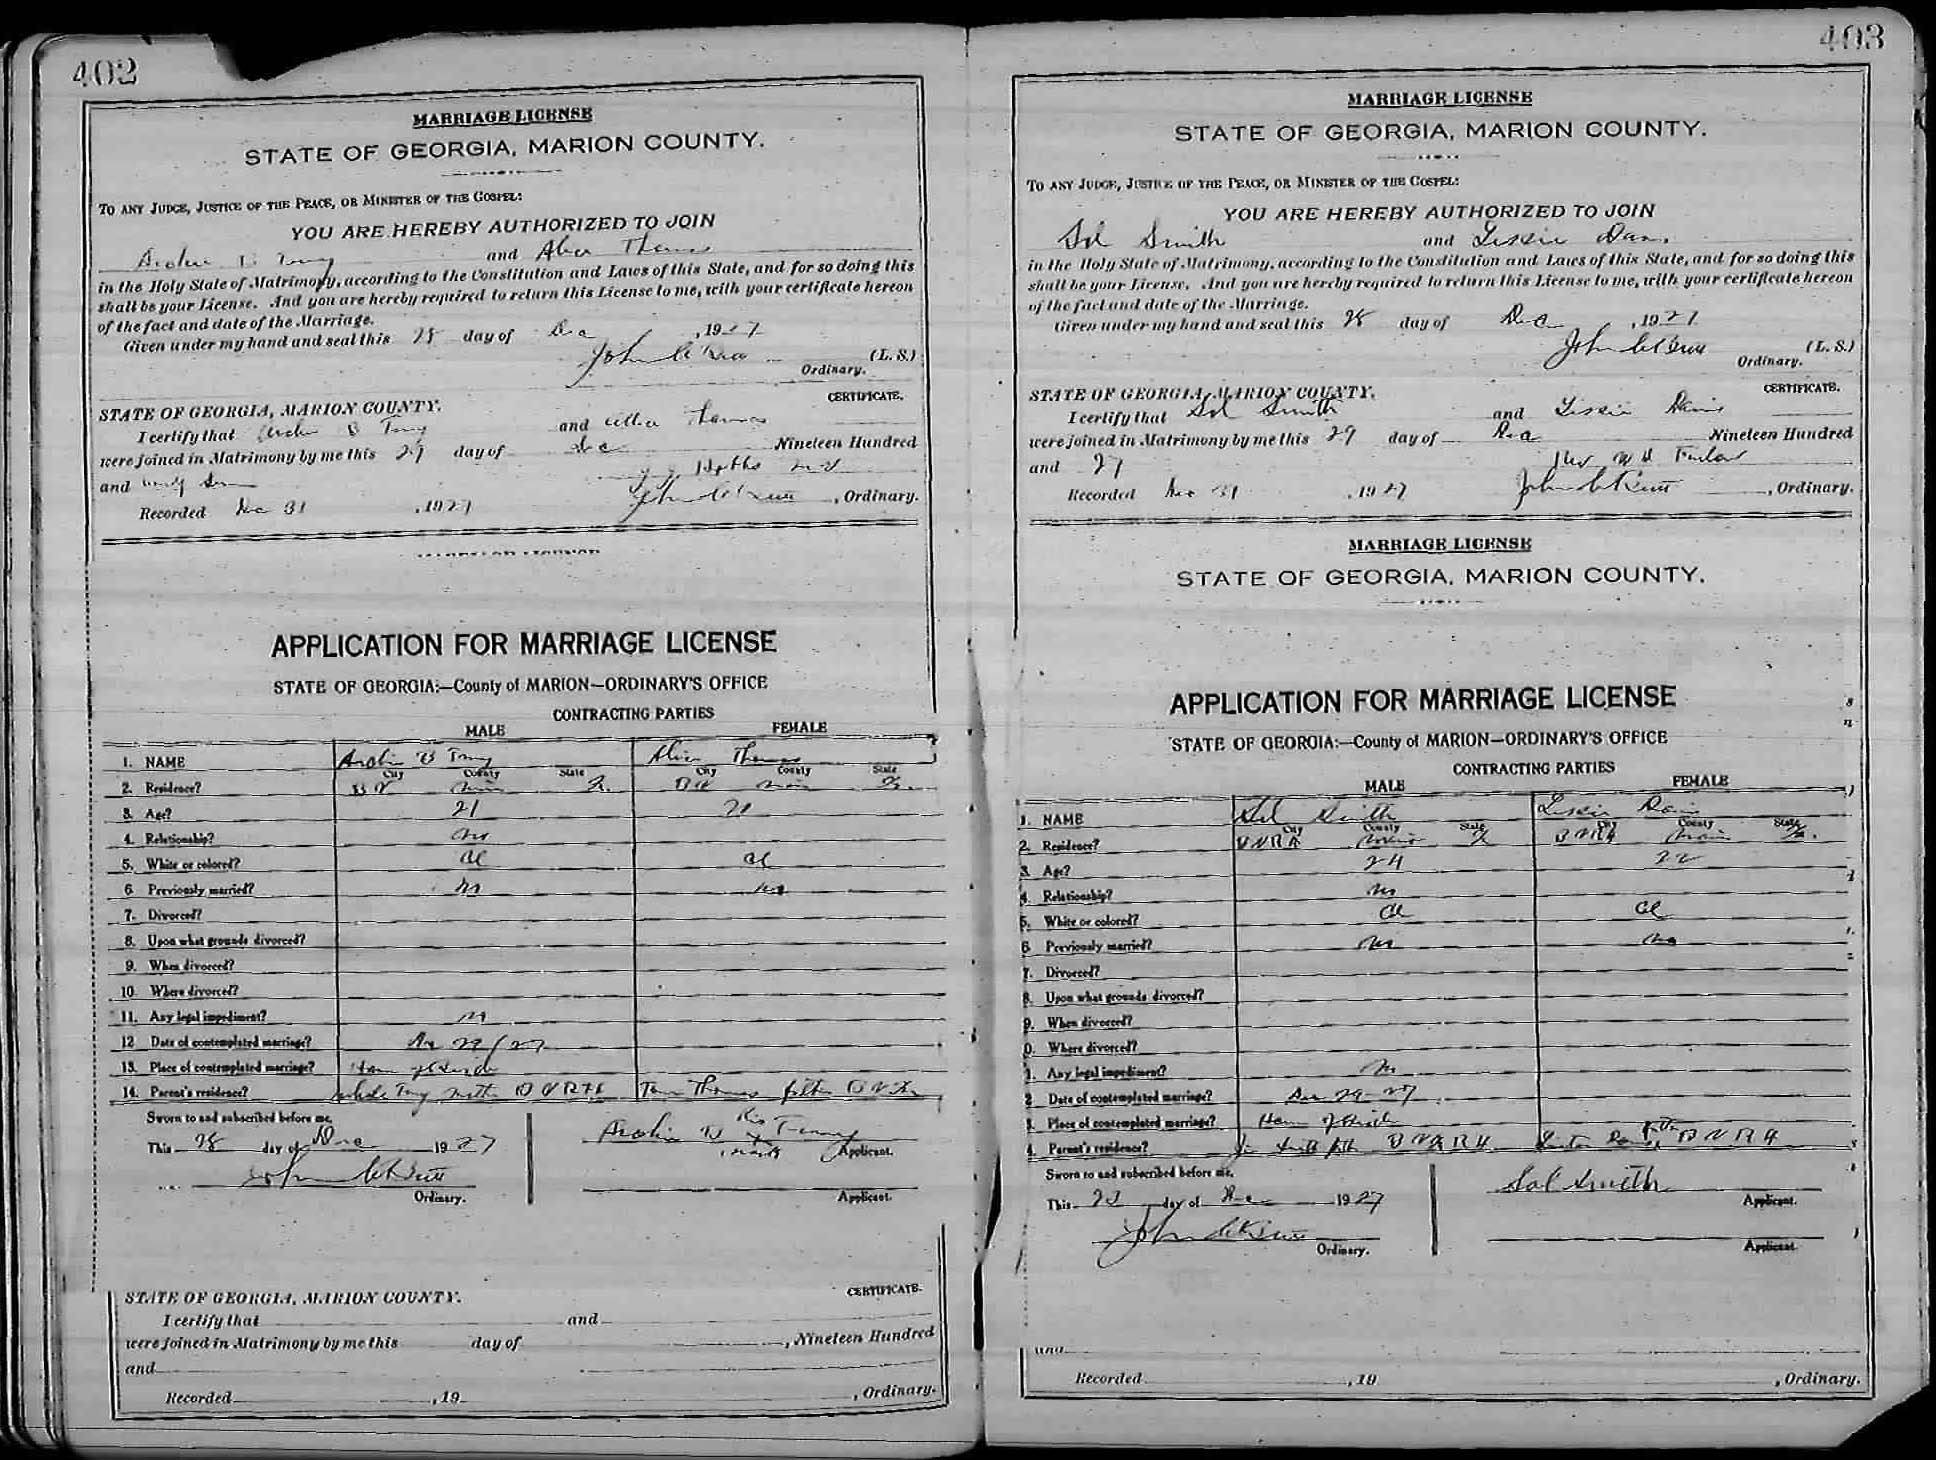 402
MARRIAGE LICENSE
STATE OF GEORGIA, MARION COUNTY.
TO ANY JUDGE, JUSTICE OF THE PEACE, OR MINISTER OF THE GOSPEL:
YOU ARE HEREBY AUTHORIZED TO JOIN
Archie B and Alice Thomas
in the Holy State of Matrimony, according to the Constitution and Laws of this State, and for so doing this
shall be your License. And you are hereby required to return this License to me, with your certificate hereon
of the fact and date of the Marriage.
Given under my hand and seal this 28 day of Dec , 1927
John (L. S.)
Ordinary.
CERTIFICATE.
STATE OF GEORGIA, MARION COUNTY.
I certify that Archie B and Alice Thomas
were joined in Matrimony by me this 29 day of Dec Nineteen Hundred
and
Recorded Dec 31 , 1927 John , Ordinary.
MARRIAGE LICENSE
APPLICATION FOR MARRIAGE LICENSE
STATE OF GEORGIA:—County of MARION—ORDINARY'S OFFICE
CONTRACTING PARTIES
MALE FEMALE
1. NAME Archie B Alice Thomas
City County State City County State
2. Residence?
3. Age? 21 21
4. Relationship? no
5. White or colored? Cl Cl
6 Previously married? no no
7. Divorced?
8. Upon what grounds divorced?
9. When divorced?
10. Where divorced?
11. Any legal impediment? no
12 Date of contemplated marriage? Dec 29/27
13. Place of contemplated marriage? Home of Bride
14. Parent's residence? mother Thomas father
Sworn to and subscribed before me,
This 28 day of Dec 1927
Archie B His X mark Applicant.
John
Ordinary. Applicant.
STATE OF GEORGIA, MARION COUNTY. CERTIFICATE.
I certify that and
were joined in Matrimony by me this day of , Nineteen Hundred
and
Recorded , 19 , Ordinary.
403
MARRIAGE LICENSE
STATE OF GEORGIA, MARION COUNTY.
TO ANY JUDGE, JUSTICE OF THE PEACE, OR MINISTER OF THE GOSPEL:
YOU ARE HEREBY AUTHORIZED TO JOIN
Sol Smith and Lessie Davis
in the Holy State of Matrimony, according to the Constitution and Laws of this State, and for so doing this
shall be your License. And you are hereby required to return this License to me, with your certificate hereon
of the fact and date of the Marriage.
Given under my hand and seal this 28 day of Dec , 1927
John (L. S.)
Ordinary.
CERTIFICATE.
STATE OF GEORGIA, MARION COUNTY.
I certify that Sol Smith and Lessie Davis
were joined in Matrimony by me this 29 day of Dec Nineteen Hundred
and 27 Rev W H
Recorded Dec 31 , 1927 John , Ordinary.
MARRIAGE LICENSE
STATE OF GEORGIA, MARION COUNTY.
APPLICATION FOR MARRIAGE LICENSE
STATE OF GEORGIA:—County of MARION—ORDINARY'S OFFICE
CONTRACTING PARTIES
MALE FEMALE
1. NAME Sol Smith Lessie Davis
City County State City County State
2. Residence? Marion Marion
3. Age? 24 22
4. Relationship? no
5. White or colored? Cl Cl
6 Previously married? no no
7. Divorced?
8. Upon what grounds divorced?
9. When divorced?
0. Where divorced?
1. Any legal impediment? no
2 Date of contemplated marriage? Dec 29-27
3. Place of contemplated marriage? Home of Bride
4. Parent's residence? Smith father Davis father
Sworn to and subscribed before me,
This day of Dec 1927
Sol Smith Applicant.
John
Ordinary. Applicant.
and
Recorded , 19 , Ordinary.